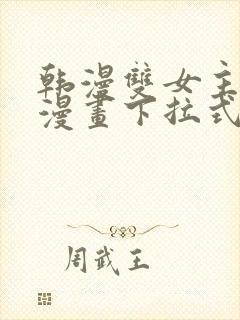 韩漫雙女主
漫畫下拉式
周武王